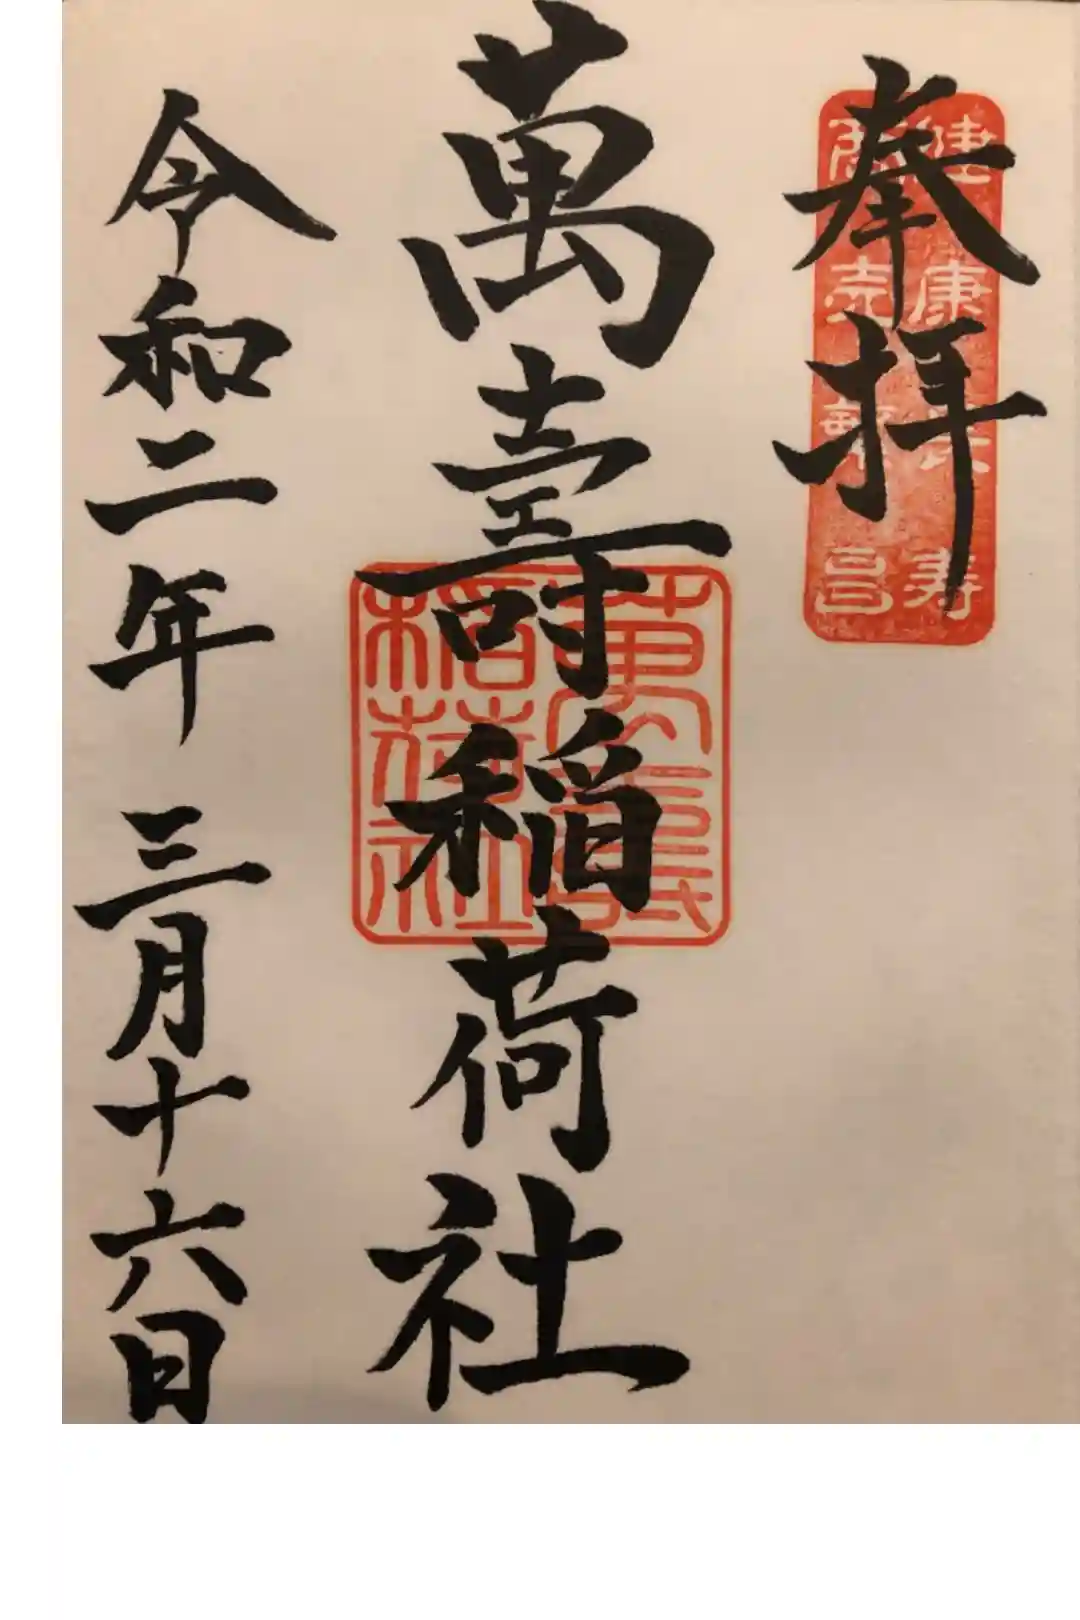 奉拝
健康長寿
商売繁昌
萬壽稲荷社
令和二年 三月十六日